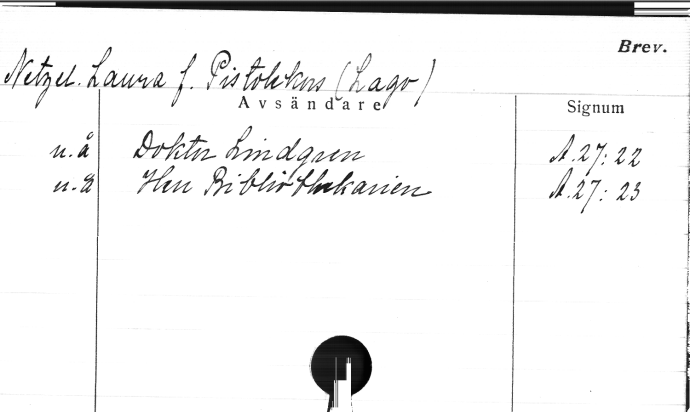 Brev.
Netzel. Laura f. Pistolekors (Lago)
Avsändare
Signum
u.å Doktor Lindgren A.27:22
u.å Herr Bibliothekarien A.27:23